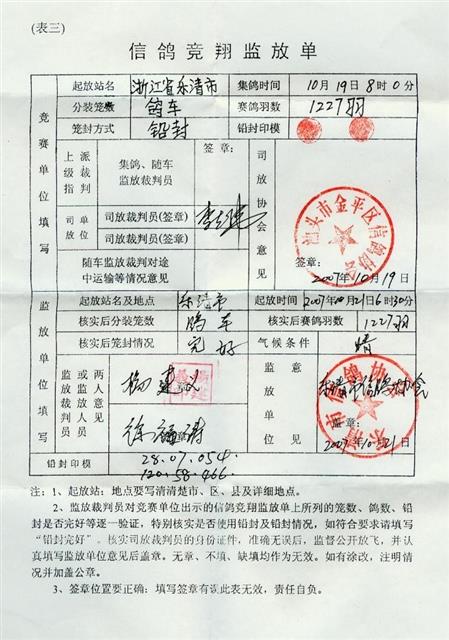 (表三)
信鸽竞翔监放单
竞赛单位填写
起放站名 浙江省乐清市 集鸽时间 10月19日8时0分
分装笼数 鸽车 赛鸽羽数 1227羽
笼封方式 铅封 铅封印模
上级 派裁指判 集鸽、随车监放裁判员 签章:
司放单位 司放裁判员(签章)
司放裁判员(签章)
随车监放裁判对途中运输等情况意见
司放协会意见
汕头市金平区信鸽协会
签章:
2007年10月19日
监放单位填写
起放站名及地点 乐清市 起放时间 2007年10月21日6时30分
核实后分装笼数 鸽车 核实后赛鸽羽数 1227羽
核实后笼封情况 完好 气候条件 晴
监放裁判员 或监放人员 两人意见
杨建义
徐福清
监放单位意见
乐清市信鸽协会
签章:
2007年10月21日
铅封印模 28.07.054
120.58.466
注:1、起放站:地点要写清清楚市、区、县及详细地点。
2、监放裁判员对竞赛单位出示的信鸽竞翔监放单上所列的笼数、鸽数、铅
封是否完好等逐一验证,特别核实是否使用铅封及铅封情况,如符合要求请填写
“铅封完好”。核实司放裁判员的身份证件,准确无误后,监督公开放飞,并认
真填写监放单位意见后盖章。无章、不填、缺填均作为无效。如有涂改,注明情
况并加盖公章。
3、签章位置要正确:填写签章有误此表无效,责任自负。